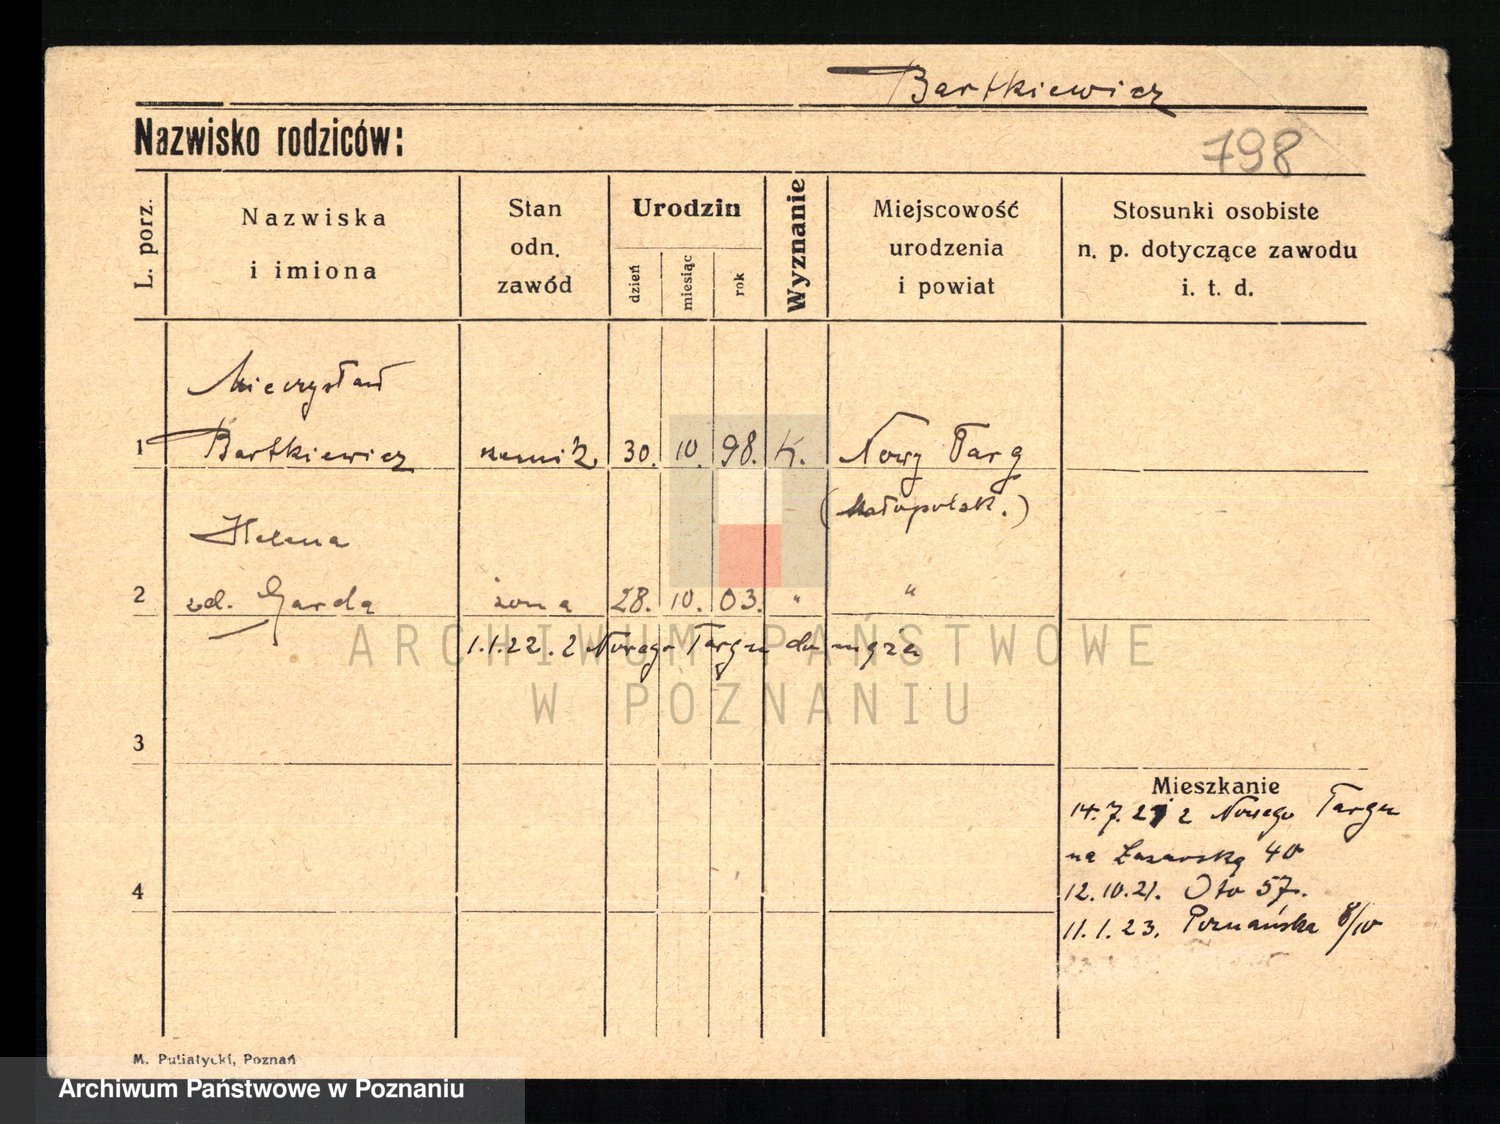 Bartkiewicz
Nazwisko rodziców:
798
L. porz.
Nazwiska
i imiona
Stan
odn.
zawód
Urodzin
dzień
miesiąc
rok
Wyznanie
Miejscowość
urodzenia
i powiat
Stosunki osobiste
n. p. dotyczące zawodu
i. t. d.
Mieczysław
1 Bartkiewicz 30. 10. 98. K. Nowy Targ
(Małopolsk.)
Helena
2 zd. Garda żona 28. 10. 03. " "
1.1.22. z Nowego Targu do męża
ARCHIWUM PAŃSTWOWE
W POZNANIU
3
Mieszkanie
14.7.21 z Nowego Targu
na Łazarską 40
4
12.10.21. Oto 57.
11.1.23. Poznańska 8/10
M. Putiatycki, Poznań
Archiwum Państwowe w Poznaniu